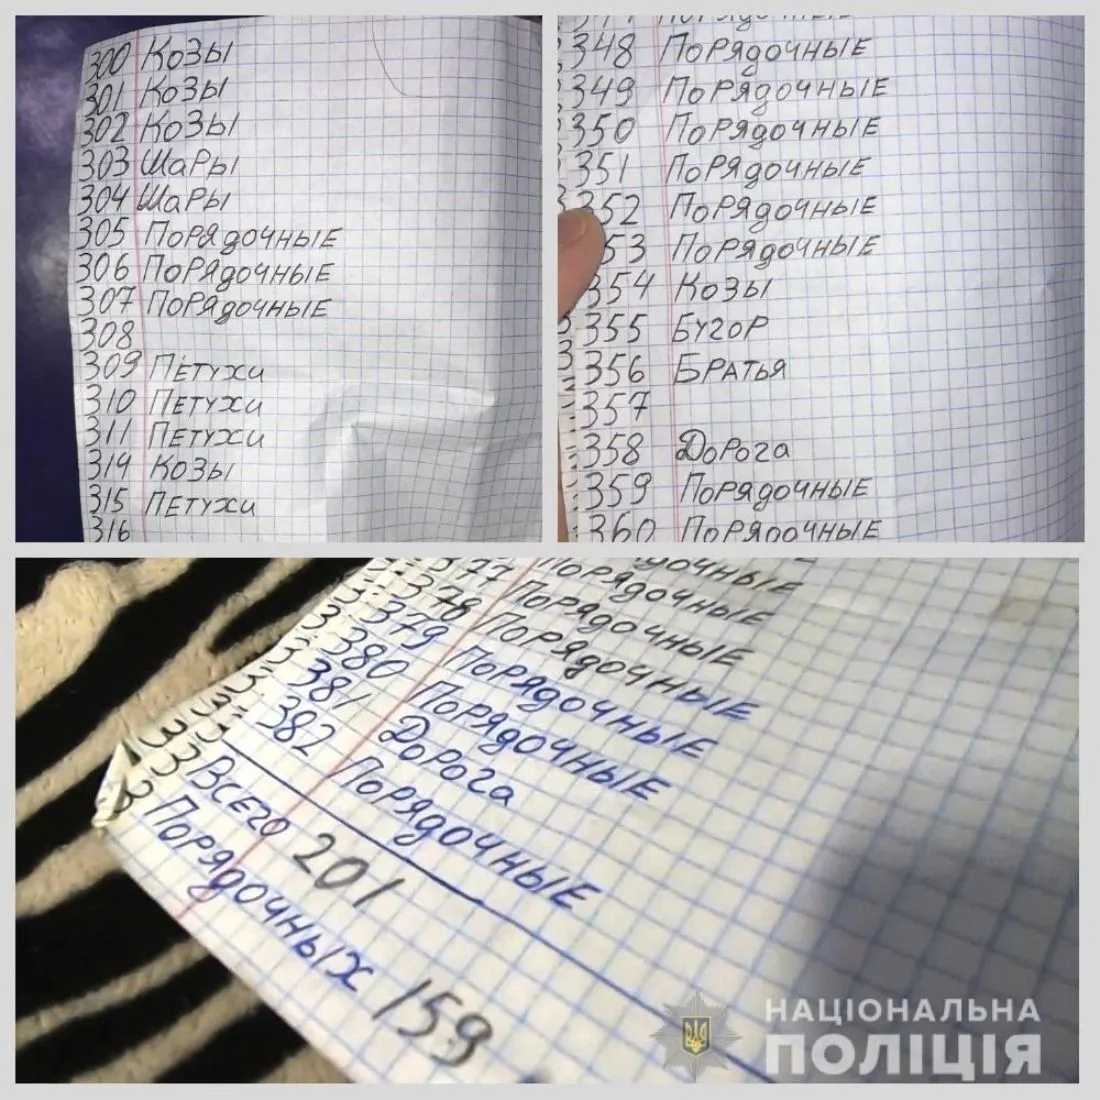 300 Козы
301 Козы
302 Козы
303 Шары
304 Шары
305 Порядочные
306 Порядочные
307 Порядочные
308
309 Петухи
310 Петухи
311 Петухи
314 Козы
315 Петухи
316
348 Порядочные
349 Порядочные
350 Порядочные
351 Порядочные
352 Порядочные
353 Порядочные
354 Козы
355 Бугор
356 Братья
357
358 Дорога
359 Порядочные
360 Порядочные
Порядочные
377 Порядочные
378 Порядочные
379 Порядочные
380 Порядочные
381 Дорога
382 Порядочные
Всего 201
Порядочных 159
НАЦІОНАЛЬНА
ПОЛІЦІЯ